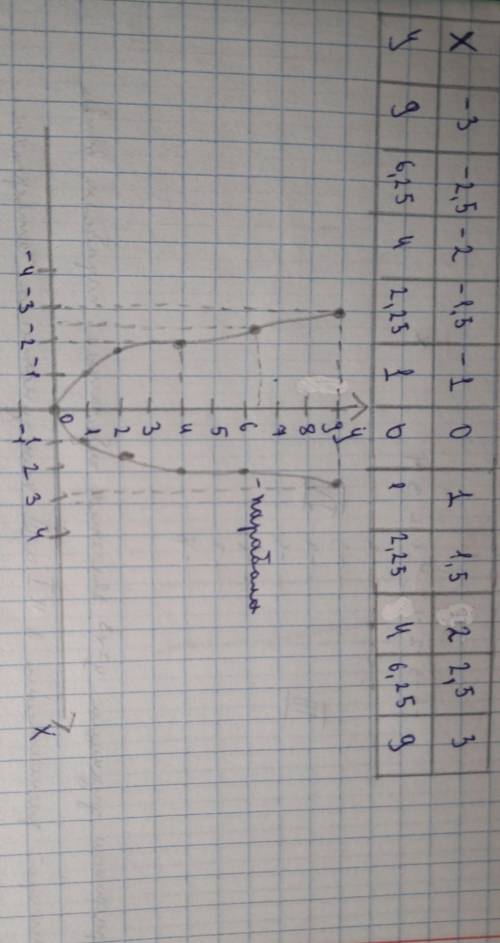 x -3 -2,5 -2 -1,5 -1 0 1 1,5 2 2,5 3
y 9 6,25 4 2,25 1 0 1 2,25 4 6,25 9
y
9
8
7
6 - парабола
5
4
3
2
1
-4 -3 -2 -1 0 1 2 3 4 x
-1